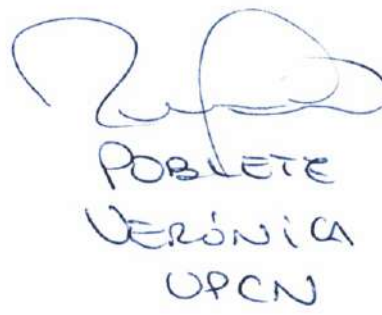 POBLETE
VERÓNICA
UPCN